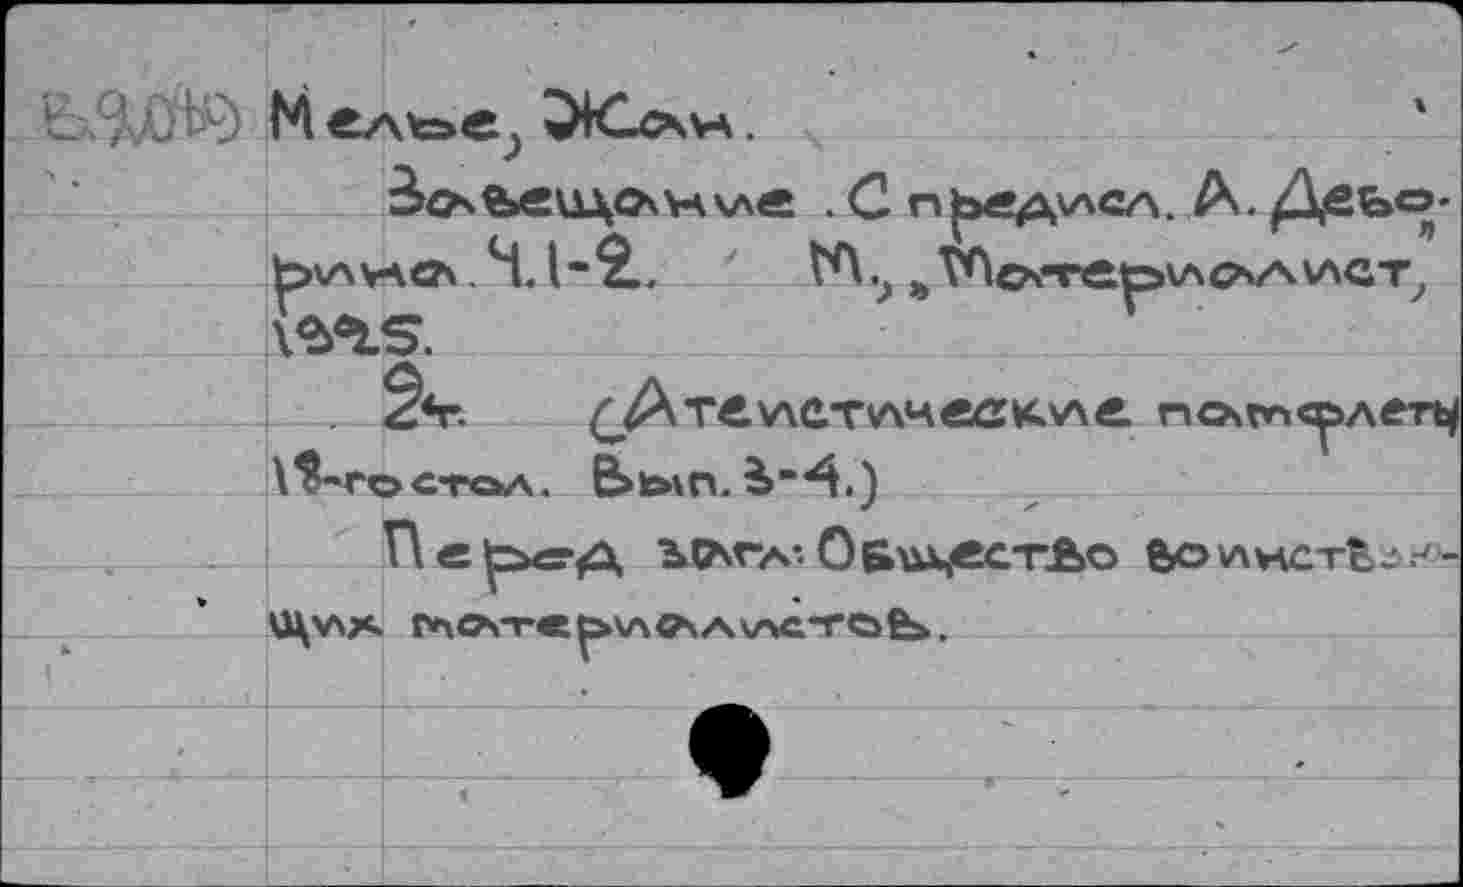 Мелье, Жан.
Завещание. С предисл. А. Дебо-
рина. Ч.1-2. М., „Материалист",
1925.
2т. (Атеистические памфлеты
18-го стол. Вып. 3-4.)
Перед загл: Общество воинств
щих материалистов.